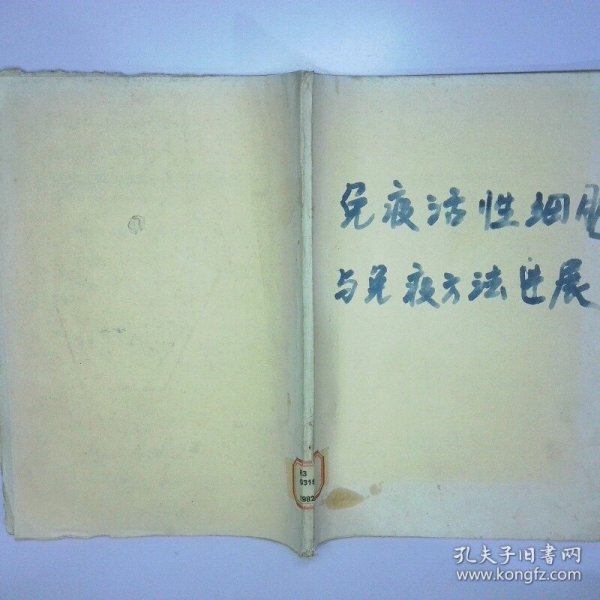 免疫活性细胞
与免疫方法进展
13
5315
1982
孔夫子旧书网
www.kongfz.com